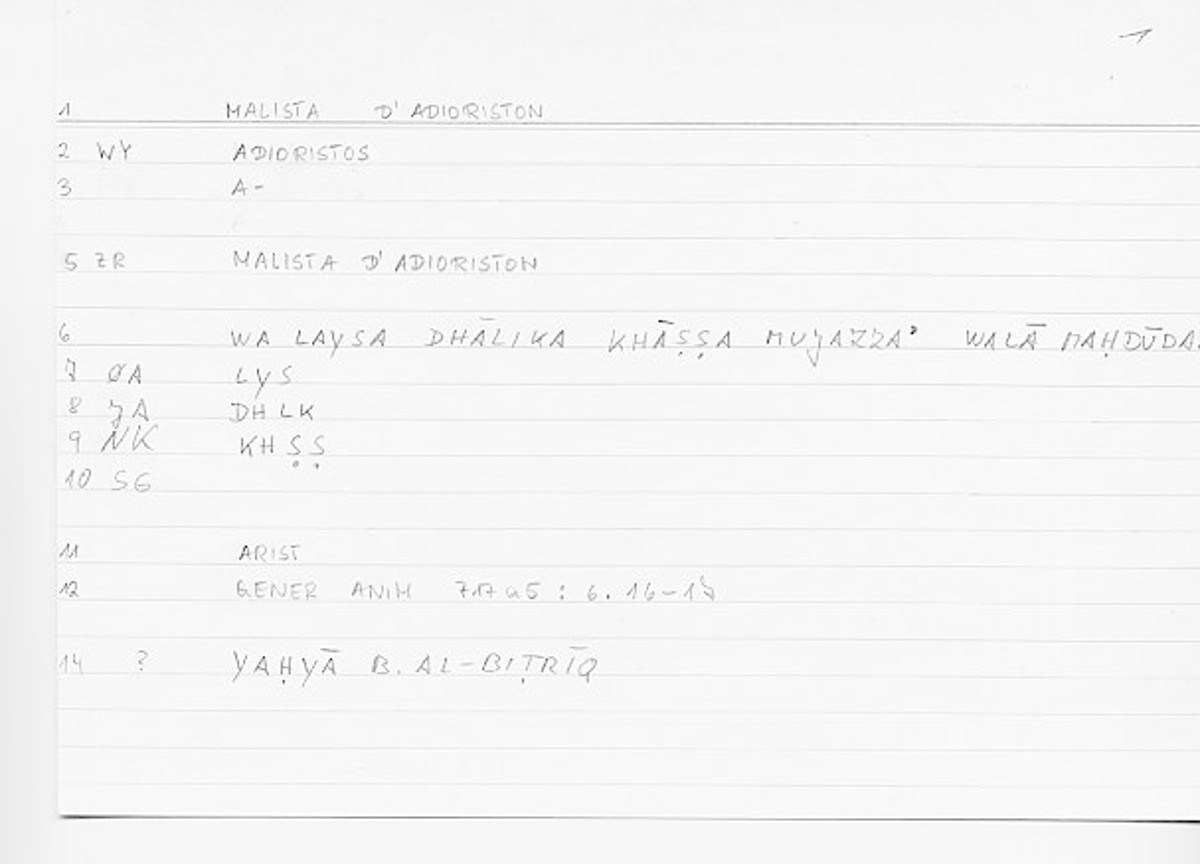 1
1 MALISTA D' ADIORISTON
2 WY ADIORISTOS
3 A-
5 ZR MALISTA D' ADIORISTON
6 WA LAYSA DHĀLIKA KHĀṢṢA MUJAZZAʾ WALĀ MAḤDŪDA
7 ØA LYS
8 JA DHLK
9 NK KHṢṢ
10 SG
11 ARIST
12 GENER ANIM 717a5 : 6.16-17
14 ? YAḤYĀ B. AL-BIṬRĪQ